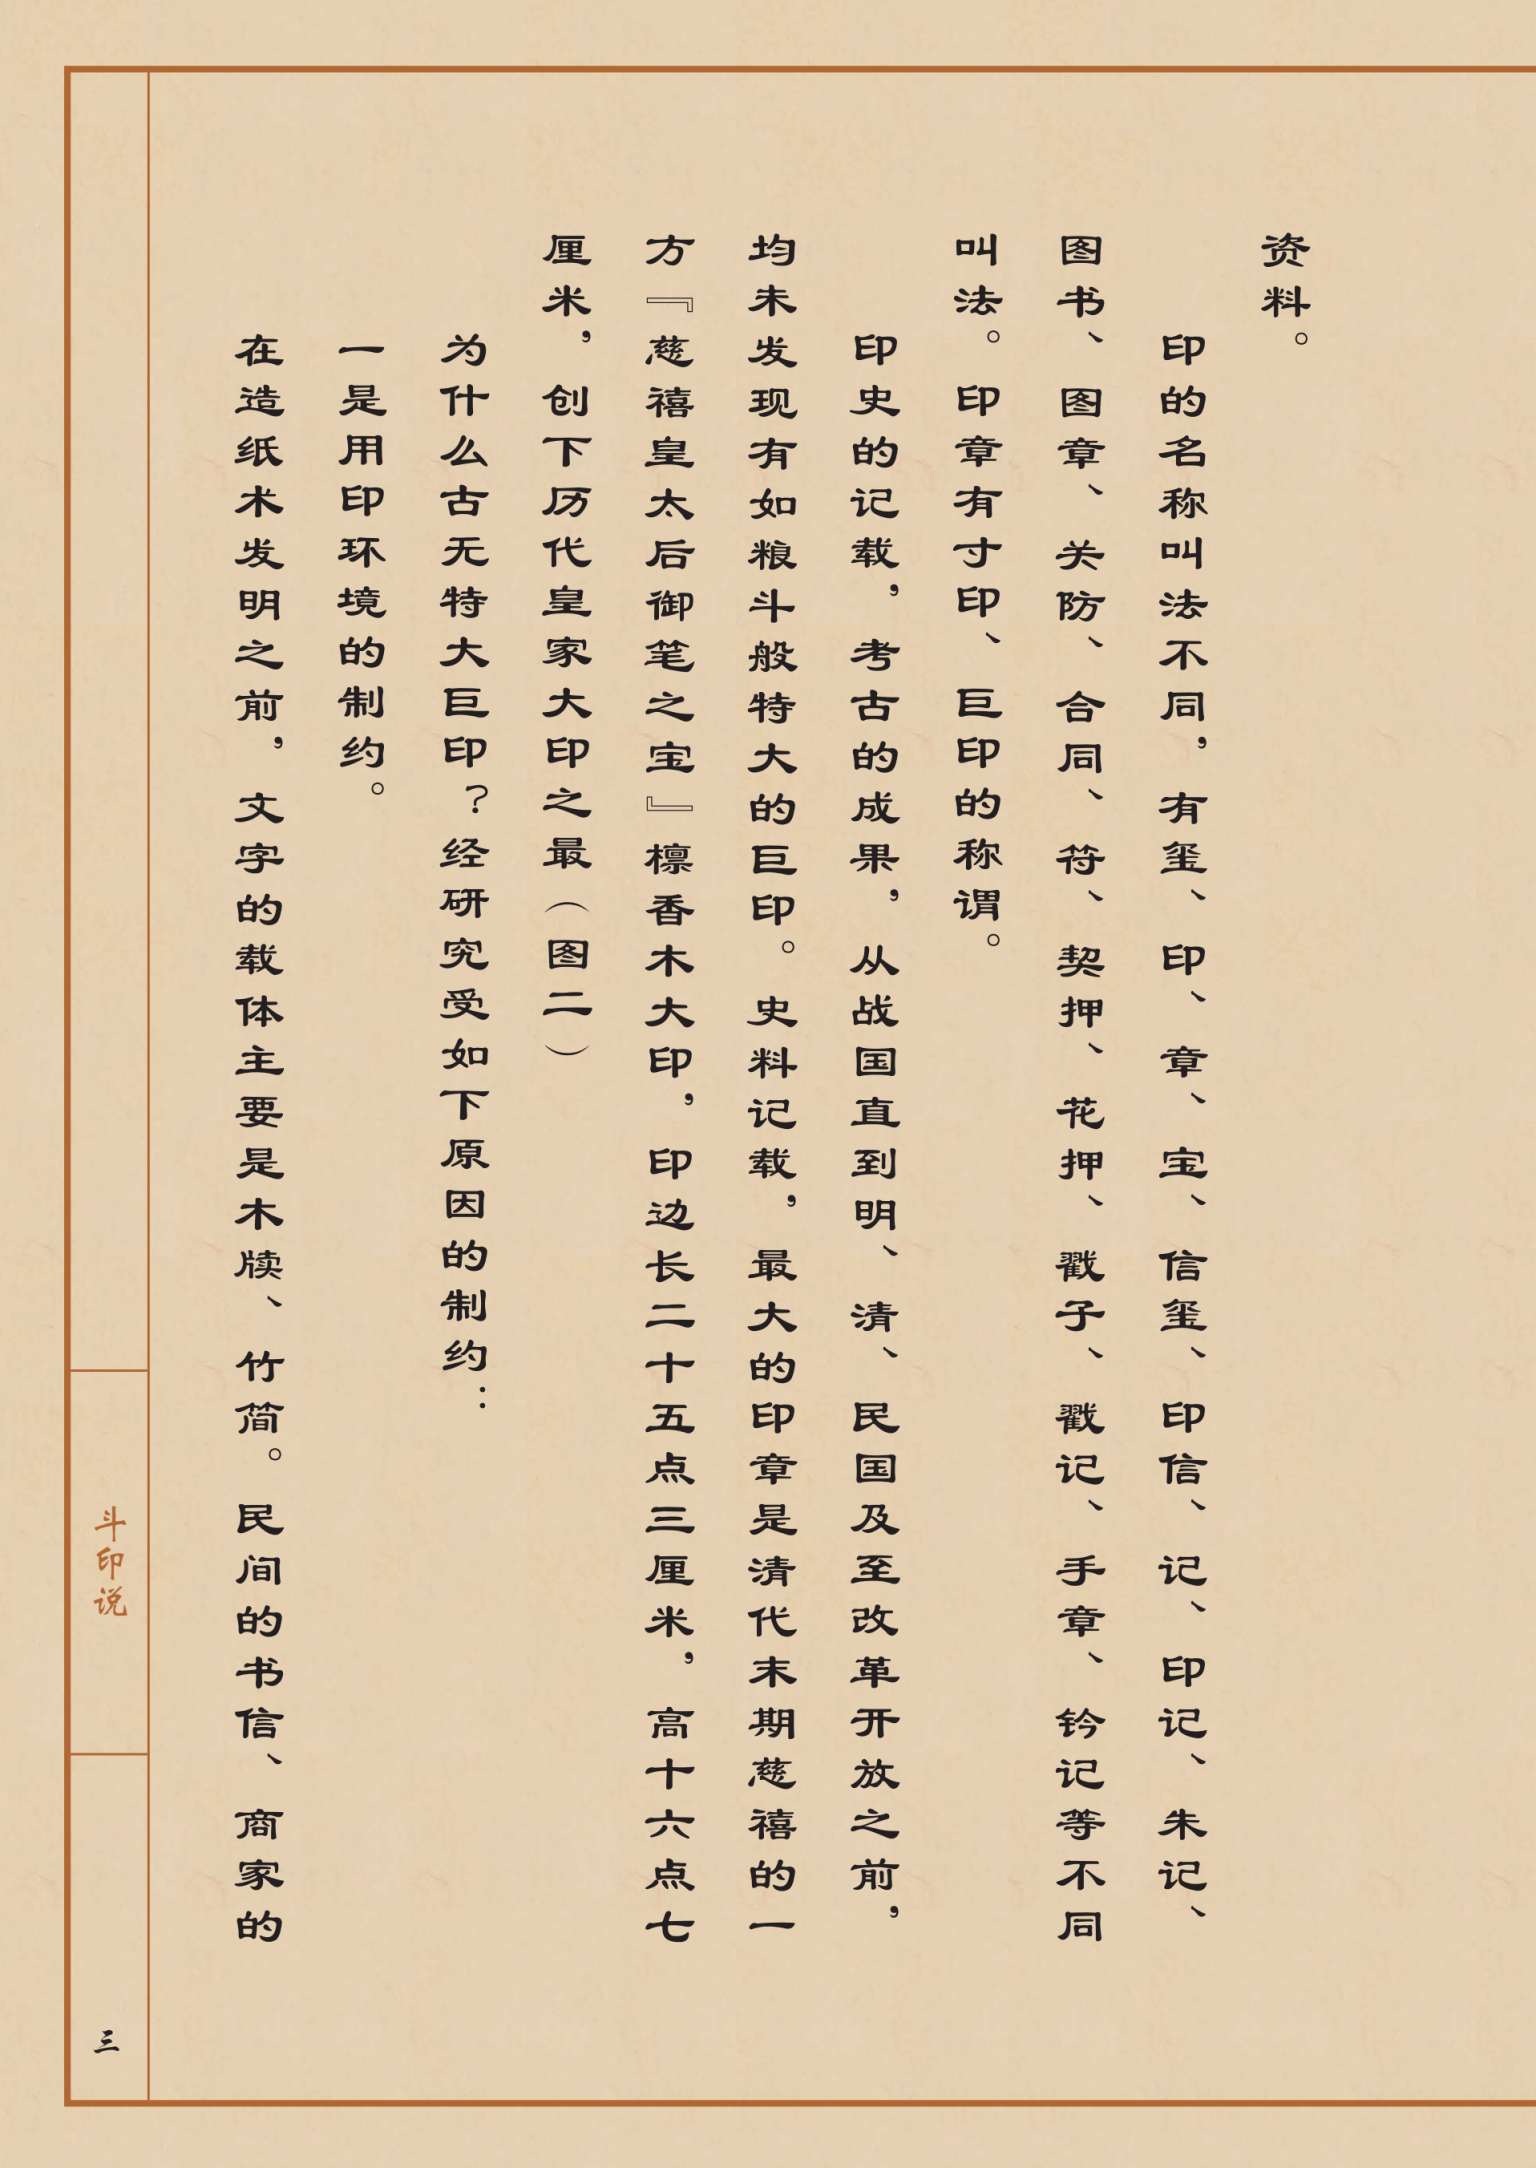 资料。
印的名称叫法不同，有玺、印、章、宝、信玺、印信、记、印记、朱记、
图书、图章、关防、合同、符、契押、花押、戳子、戳记、手章、钤记等不同
叫法。印章有寸印、巨印的称谓。
印史的记载，考古的成果，从战国直到明、清、民国及至改革开放之前，
均未发现有如粮斗般特大的巨印。史料记载，最大的印章是清代末期慈禧的一
方『慈禧皇太后御笔之宝』檩香木大印，印边长二十五点三厘米，高十六点七
厘米，创下历代皇家大印之最（图二）
为什么古无特大巨印？经研究受如下原因的制约：
一是用印环境的制约。
在造纸术发明之前，文字的载体主要是木牍、竹简。民间的书信、商家的
斗印说
三